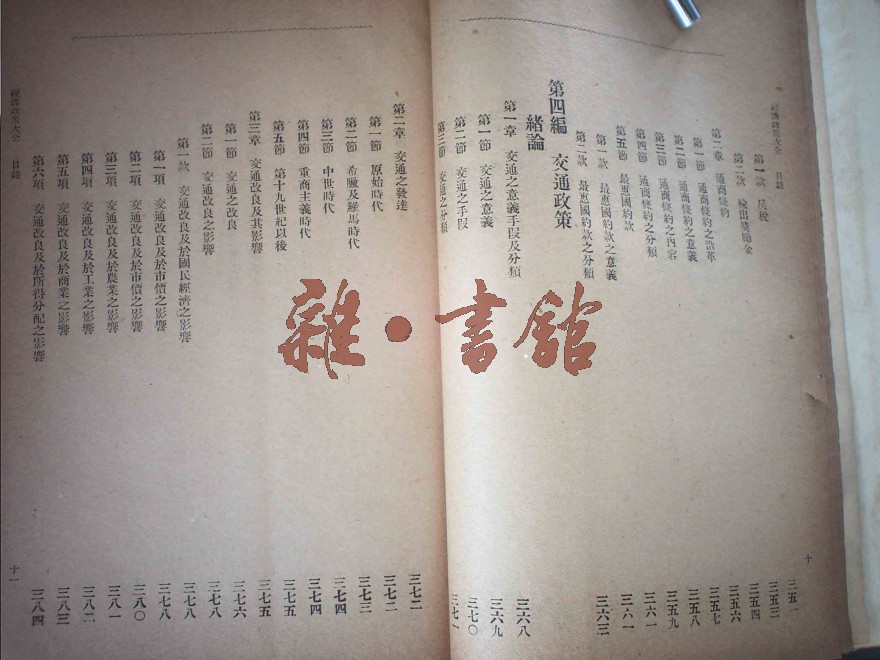 經濟政策大全 目錄
十
第一款 戾稅 三五一
第二款 輸出奬勵金 三五三
第二章 通商條約 三五四
第一節 通商條約之沿革 三五六
第二節 通商條約之意義 三五七
第三節 通商條約之內容 三五八
第四節 通商條約之分類 三五九
第五節 最惠國約款 三六一
第一款 最惠國約款之意義 三六一
第二款 最惠國約款之分類 三六三
第四編 交通政策
緒論
第一章 交通之意義手段及分類 三六八
第一節 交通之意義 三六九
第二節 交通之手段 三七〇
第三節 交通之分類 三七一
第二章 交通之發達 三七二
第一節 原始時代 三七二
第二節 希臘及羅馬時代 三七三
第三節 中世時代 三七四
第四節 重商主義時代 三七四
第五節 第十九世紀以後 三七五
第三章 交通改良及其影響 三七五
第一節 交通之改良 三七六
第二節 交通改良之影響 三七八
第一款 交通改良及於國民經濟之影響 三七八
第一項 交通改良及於市價之影響 三七八
第二項 交通改良及於市價之影響 三八〇
第三項 交通改良及於農業之影響 三八一
第四項 交通改良及於工業之影響 三八二
第五項 交通改良及於商業之影響 三八三
第六項 交通改良及於所得分配之影響 三八四
經濟政策大全 目錄
十一
雜·書館